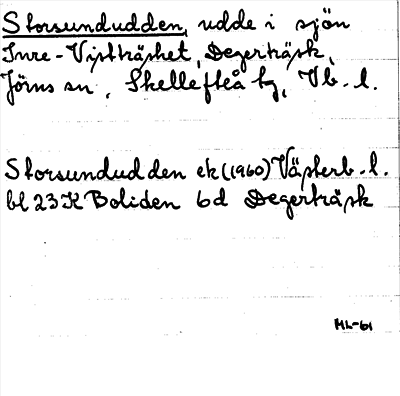 Storsundudden, udde i sjön
Inre-Vistträsket, Degerträsk,
Jörns sn, Skellefteå tg, Vb. l.
Storsundudden ek (1960) Västerb. l.
bl 23K Boliden 6d Degerträsk
ML-61